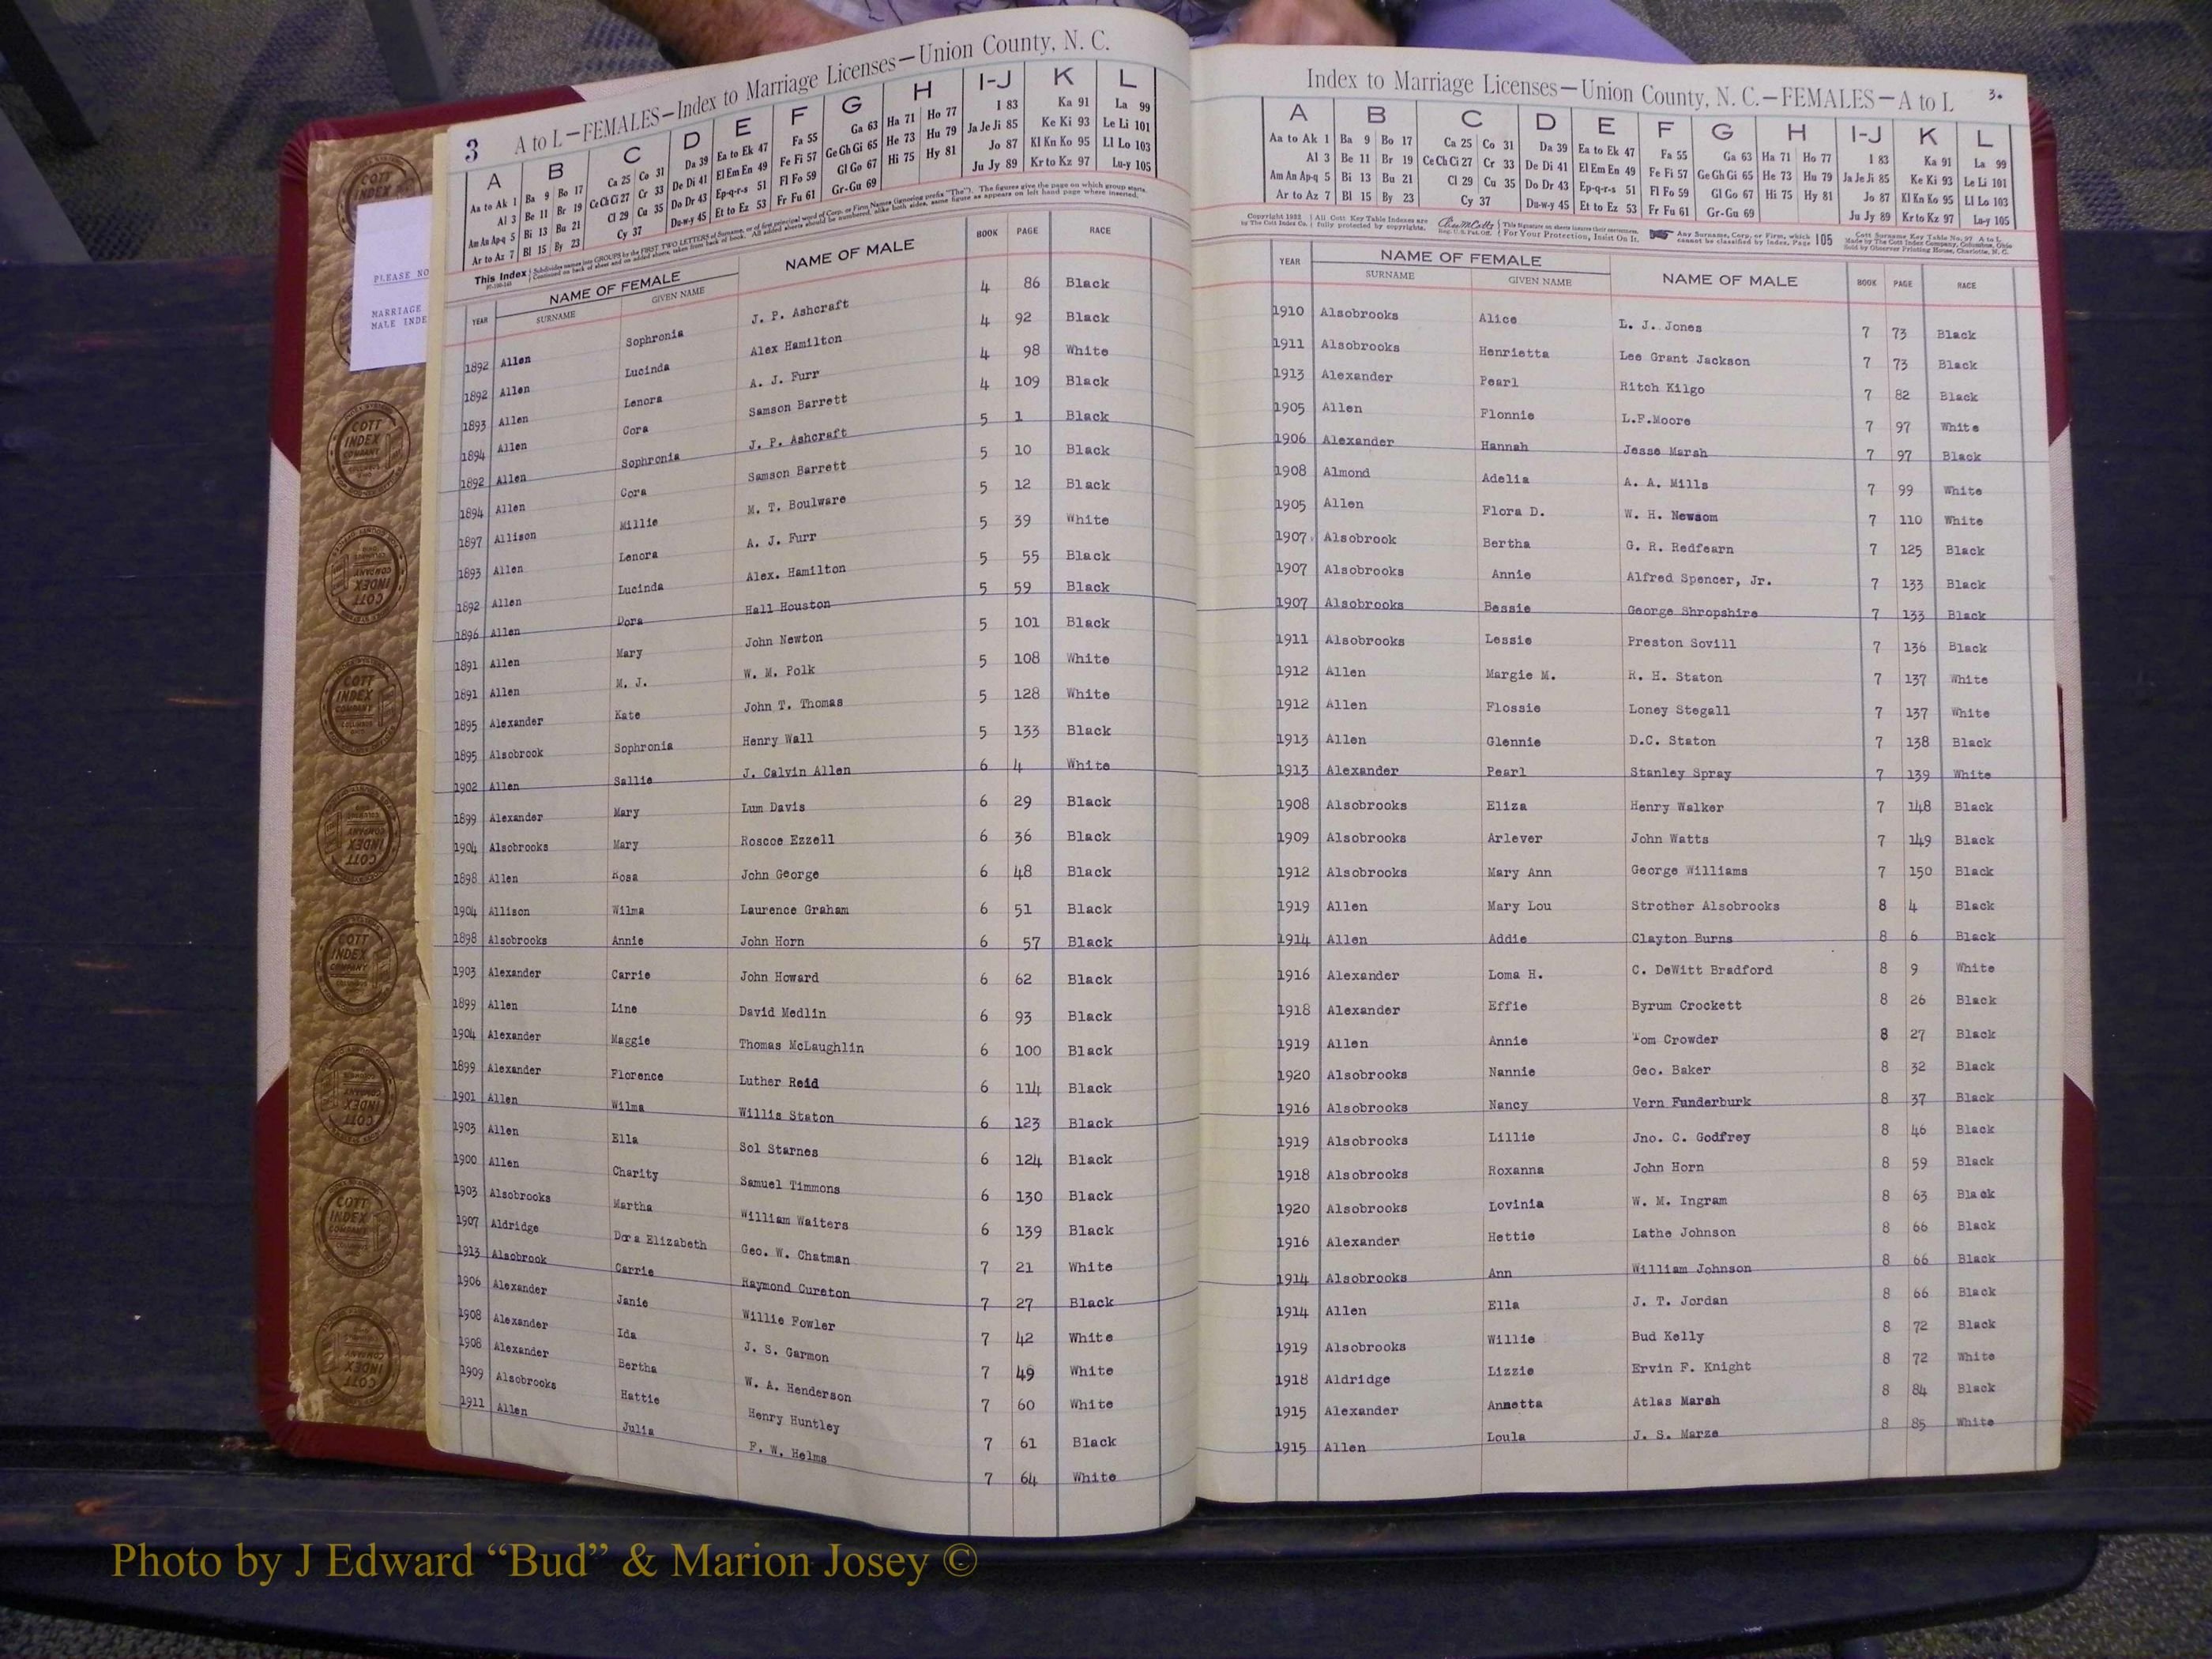 3 A to L—FEMALES—Index to Marriage Licenses—Union County, N. C.
A B C D E F G H I-J K L
Aa to Ak 1 Ba 9 Bo 17 Ca 25 Co 31 Da 39 Ea to Ek 47 Fa 55 Ga 63 Ha 71 Ho 77 I 83 Ka 91 La 99
Al 3 Be 11 Br 19 Ce Ch Ci 27 Cr 33 De Di 41 El Em En 49 Fe Fi 57 Ge Gh Gi 65 He 73 Hu 79 Ja Je Ji 85 Ke Ki 93 Le Li 101
Am An Ap-q 5 Bi 13 Bu 21 Cl 29 Cu 35 Do Dr 43 Ep-q-r-s 51 Fl Fo 59 Gl Go 67 Hi 75 Hy 81 Jo 87 Kl Kn Ko 95 Ll Lo 103
Ar to Az 7 Bl 15 By 23 Cy 37 Du-w-y 45 Et to Ez 53 Fr Fu 61 Gr-Gu 69 Ju Jy 89 Kr to Kz 97 Lu-y 105
This Index Subdivides names into GROUPS by the FIRST TWO LETTERS of Surname, or of first principal word of Corp. or Firm Names (ignoring prefix "The"). The figures give the page on which group starts.
Continued on back of sheet and on added sheets, taken from back of book. All added sheets should be numbered, alike both sides, same figure as appears on left hand page where inserted.
YEAR NAME OF FEMALE NAME OF MALE BOOK PAGE RACE
SURNAME GIVEN NAME
1892 Allen Sophronia J. P. Ashcraft 4 86 Black
1892 Allen Lucinda Alex Hamilton 4 92 Black
1893 Allen Lenora A. J. Furr 4 98 White
1894 Allen Cora Samson Barrett 4 109 Black
1892 Allen Sophronia J. P. Ashcraft 5 1 Black
1894 Allen Cora Samson Barrett 5 10 Black
1897 Allison Millie M. T. Boulware 5 12 Black
1893 Allen Lenora A. J. Furr 5 39 White
1892 Allen Lucinda Alex. Hamilton 5 55 Black
1896 Allen Dora Hall Houston 5 59 Black
1891 Allen Mary John Newton 5 101 Black
1891 Allen M. J. W. M. Polk 5 108 White
1895 Alexander Kate John T. Thomas 5 128 White
1895 Alsobrook Sophronia Henry Wall 5 133 Black
1902 Allen Sallie J. Calvin Allen 6 4 White
1899 Alexander Mary Lum Davis 6 29 Black
1904 Alsobrooks Mary Roscoe Ezzell 6 36 Black
1898 Allen Rosa John George 6 48 Black
1904 Allison Wilma Laurence Graham 6 51 Black
1898 Alsobrooks Annie John Horn 6 57 Black
1903 Alexander Carrie John Howard 6 62 Black
1899 Allen Line David Medlin 6 93 Black
1904 Alexander Maggie Thomas McLaughlin 6 100 Black
1899 Alexander Florence Luther Reid 6 114 Black
1901 Allen Wilma Willis Staton 6 123 Black
1903 Allen Ella Sol Starnes 6 124 Black
1900 Allen Charity Samuel Timmons 6 130 Black
1903 Alsobrooks Martha William Waiters 6 139 Black
1907 Aldridge Dora Elizabeth Geo. W. Chatman 7 21 White
1913 Alsobrook Carrie Raymond Cureton 7 27 Black
1906 Alexander Janie Willie Fowler 7 42 White
1908 Alexander Ida J. S. Garmon 7 49 White
1908 Alexander Bertha W. A. Henderson 7 60 White
1909 Alsobrooks Hattie Henry Huntley 7 61 Black
1911 Allen Julia F. W. Helms 7 64 White
PLEASE NO
MARRIAGE
MALE INDE
COTT INDEX COMPANY
Index to Marriage Licenses—Union County, N. C.—FEMALES—A to L 3.
A B C D E F G H I-J K L
Aa to Ak 1 Ba 9 Bo 17 Ca 25 Co 31 Da 39 Ea to Ek 47 Fa 55 Ga 63 Ha 71 Ho 77 I 83 Ka 91 La 99
Al 3 Be 11 Br 19 Ce Ch Ci 27 Cr 33 De Di 41 El Em En 49 Fe Fi 57 Ge Gh Gi 65 He 73 Hu 79 Ja Je Ji 85 Ke Ki 93 Le Li 101
Am An Ap-q 5 Bi 13 Bu 21 Cl 29 Cu 35 Do Dr 43 Ep-q-r-s 51 Fl Fo 59 Gl Go 67 Hi 75 Hy 81 Jo 87 Kl Kn Ko 95 Ll Lo 103
Ar to Az 7 Bl 15 By 23 Cy 37 Du-w-y 45 Et to Ez 53 Fr Fu 61 Gr-Gu 69 Ju Jy 89 Kr to Kz 97 Lu-y 105
Copyright All Cott Key Table Indexes are This Signature on sheets insures their correctness. Any Surname, Corp. or Firm, which Cott Surname Key Table No. 97 A to L
by The Cott Index Co. fully protected by copyrights. Reg. U.S. Pat. Off. For Your Protection, Insist On It. cannot be classified by Index, Page 105 Made by The Cott Index Company, Columbus, Ohio
Sold by Observer Printing House, Charlotte, N. C.
YEAR NAME OF FEMALE NAME OF MALE BOOK PAGE RACE
SURNAME GIVEN NAME
1910 Alsobrooks Alice L. J. Jones 7 73 Black
1911 Alsobrooks Henrietta Lee Grant Jackson 7 73 Black
1913 Alexander Pearl Ritch Kilgo 7 82 Black
1905 Allen Flonnie L.F.Moore 7 97 White
1906 Alexander Hannah Jesse Marsh 7 97 Black
1908 Almond Adelia A. A. Mills 7 99 White
1905 Allen Flora D. W. H. Newsom 7 110 White
1907 Alsobrook Bertha G. R. Redfearn 7 125 Black
1907 Alsobrooks Annie Alfred Spencer, Jr. 7 133 Black
1907 Alsobrooks Bessie George Shropshire 7 133 Black
1911 Alsobrooks Lessie Preston Sovill 7 136 Black
1912 Allen Margie M. R. H. Staton 7 137 White
1912 Allen Flossie Loney Stegall 7 137 White
1913 Allen Glennie D.C. Staton 7 138 Black
1913 Alexander Pearl Stanley Spray 7 139 White
1908 Alsobrooks Eliza Henry Walker 7 148 Black
1909 Alsobrooks Arlever John Watts 7 149 Black
1912 Alsobrooks Mary Ann George Williams 7 150 Black
1919 Allen Mary Lou Strother Alsobrooks 8 4 Black
1914 Allen Addie Clayton Burns 8 6 Black
1916 Alexander Loma H. C. DeWitt Bradford 8 9 White
1918 Alexander Effie Byrum Crockett 8 26 Black
1919 Allen Annie Tom Crowder 8 27 Black
1920 Alsobrooks Nannie Geo. Baker 8 32 Black
1916 Alsobrooks Nancy Vern Funderburk 8 37 Black
1919 Alsobrooks Lillie Jno. C. Godfrey 8 46 Black
1918 Alsobrooks Roxanna John Horn 8 59 Black
1920 Alsobrooks Lovinia W. M. Ingram 8 63 Black
1916 Alexander Hettie Lathe Johnson 8 66 Black
1914 Alsobrooks Ann William Johnson 8 66 Black
1914 Allen Ella J. T. Jordan 8 66 Black
1919 Alsobrooks Willie Bud Kelly 8 72 Black
1918 Aldridge Lizzie Ervin F. Knight 8 72 White
1915 Alexander Annetta Atlas Marsh 8 84 Black
1915 Allen Loula J. S. Marze 8 85 White
Photo by J Edward “Bud” & Marion Josey ©